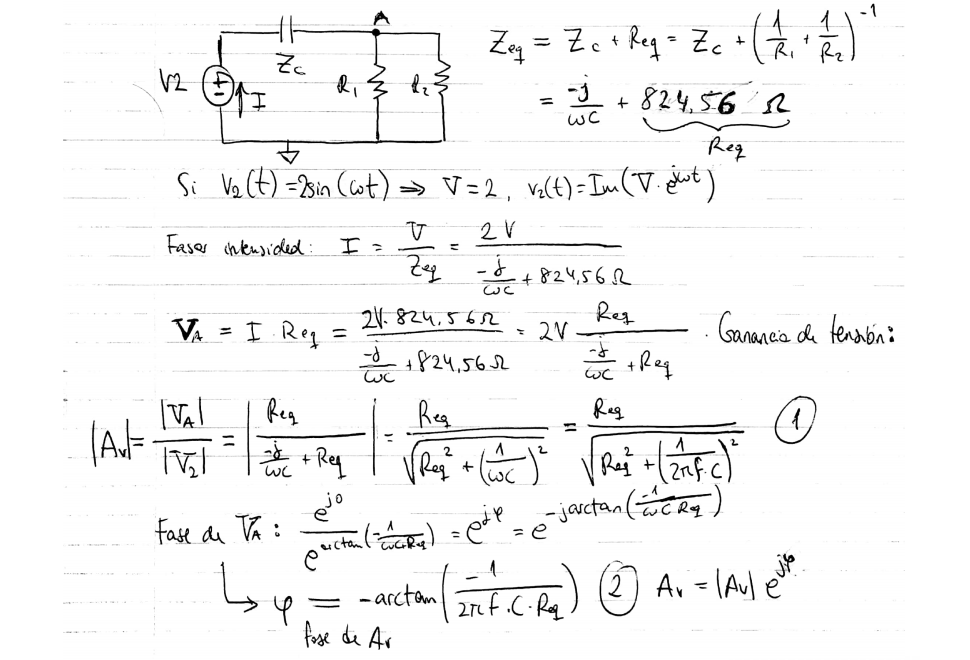 A
Z_eq = Z_c + Req = Z_c + (1/R₁ + 1/R₂)⁻¹
V2 I Z_c R₁ R₂
= -j/ωC + 824,56 Ω
Req
Si V₂(t) = 2sin(ωt) ⇒ V = 2, v₂(t) = Im(V · e^jωt)
Fasor intensidad: I = V/Zeq = 2V/(-j/ωC + 824,56 Ω)
V_A = I · Req = 2V · 824,56 Ω/(-j/ωC + 824,56 Ω) = 2V Req/(-j/ωC + Req) . Ganancia de tensión:
|Av| = |V_A|/|V₂| = |Req/(-j/ωC + Req)| = Req/√(Req² + (1/ωC)²) = Req/√(Req² + (1/2πf·C)²) ①
Fase de V_A: e^j0/e^arctan(-1/ωC·Req) = e^jφ = e^-jarctan(-1/ωC Req)
↳ φ = -arctan(-1/2πf·C·Req) ② Av = |Av| e^jφ
fase de Av